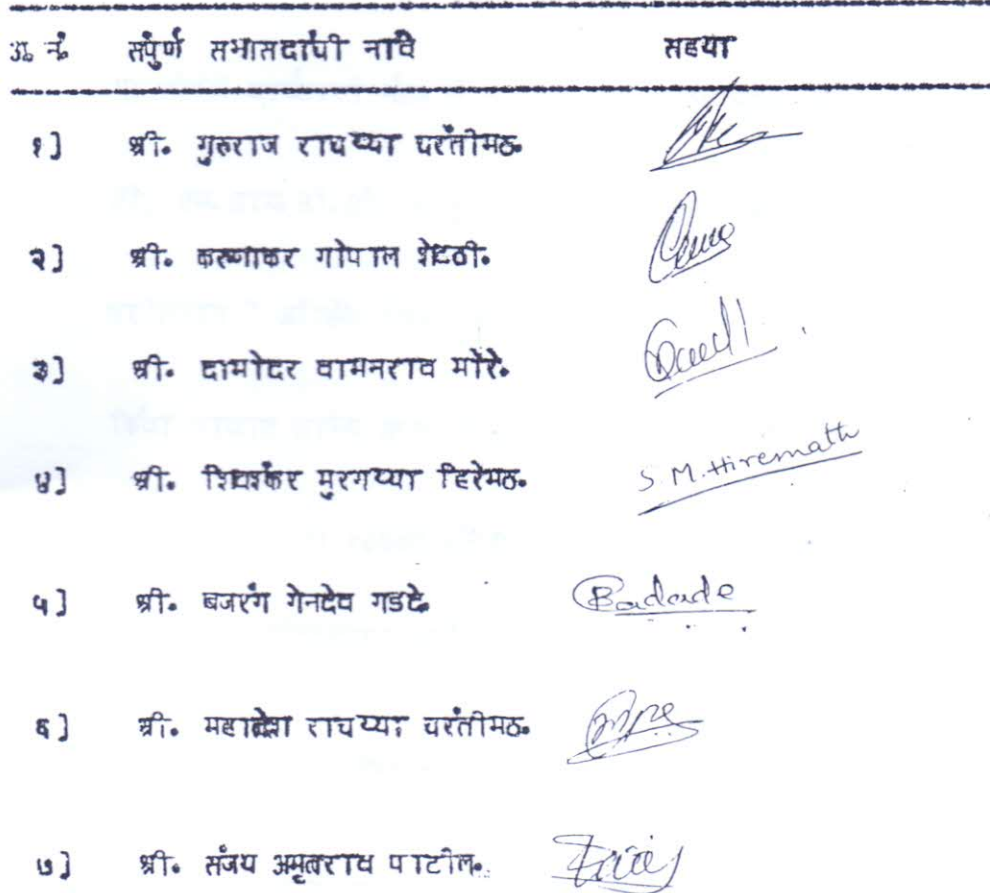 अ. नं. संपुर्ण सभासदांची नावे सहया
१] श्री. गुरुराज राचय्या चरंतीमठ.
२] श्री. करुणाकर गोपाल शेटठी.
३] श्री. दामोदर वामनराव मोरे.
४] श्री. शिवशंकर मुरगय्या हिरेमठ. S. M. Hiremath
५] श्री. बजरंग गेनदेव गडदे. Badade
६] श्री. महादेश राचय्या चरंतीमठ.
७] श्री. संजय अमृतराव पाटील.